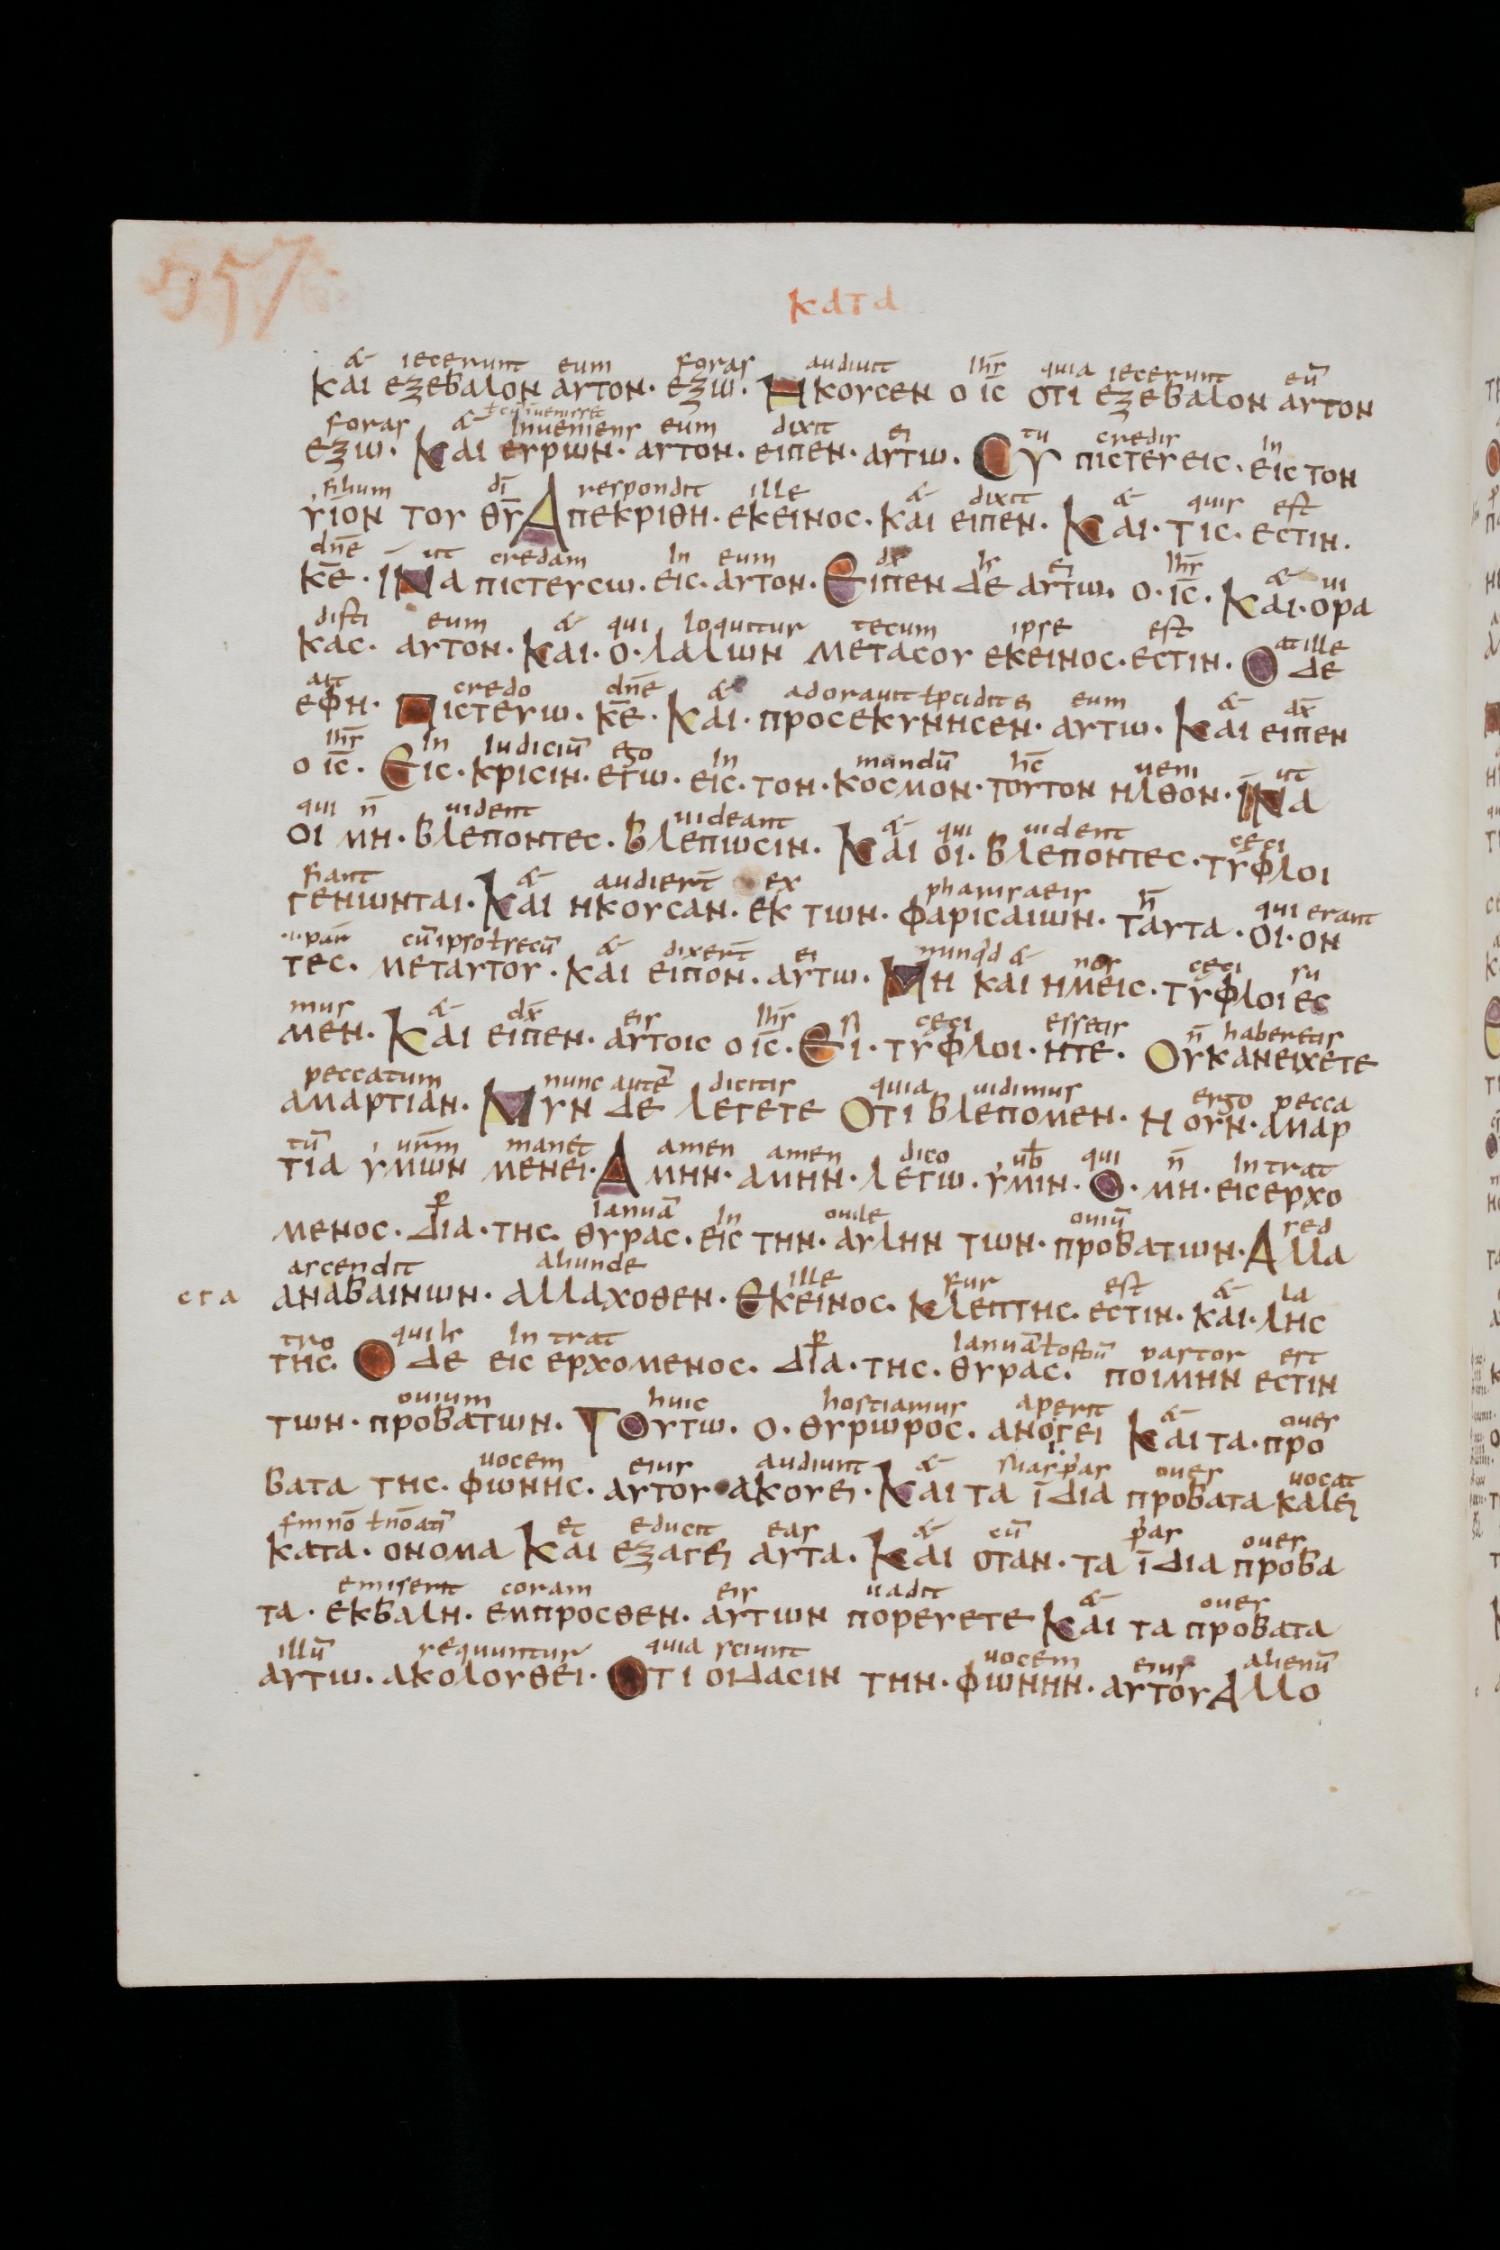 357
ΚΑΤΑ
& iecerunt eum foras audiuit ihs̄ quia iecerunt eū
ΚΑΙ ΕΞΕΒΑΛΟΝ ΑΥΤΟΝ· ΕΞω· ΗΚΟΥCΕΝ Ο ΙC̄ ΟΤΙ ΕΞΕΒΑΛΟΝ ΑΥΤΟΝ
foras & inueniens eum dixit ei tu credis in
ΕΞω· ΚΑΙ ΕΥΡωΝ· ΑΥΤΟΝ· ΕΙΠΕΝ· ΑΥΤω· CΥ ΠΙCΤΕΥΕΙC· ΕΙC ΤΟΝ
filium dī respondit ille & dixit & quis est
ΥΙΟΝ ΤΟΥ ΘῩ ΑΠΕΚΡΙΘΗ· ΕΚΕΙΝΟC· ΚΑΙ ΕΙΠΕΝ· ΚΑΙ· ΤΙC· ΕCΤΙΝ·
dn̄e ut credam in eum dx̄ ei ihs̄ & ui
ΚΕ̄· ΙΝΑ ΠΙCΤΕΥCω· ΕΙC· ΑΥΤΟΝ· ΕΙΠΕΝ ΔΕ ΑΥΤω· Ο· ΙC̄· ΚΑΙ· ΟΡΑ
disti eum & qui loquitur tecum ipse est at ille
ΚΑC· ΑΥΤΟΝ· ΚΑΙ· Ο· ΛΑΛωΝ ΜΕΤΑCΟΥ ΕΚΕΙΝΟC· ΕCΤΙΝ· Ο ΔΕ
ait credo dn̄e & adorauit ł p̄cidit ei eum & dx̄
ΕΦΗ· ΠΙCΤΕΥω· ΚΕ̄· ΚΑΙ· ΠΡΟCΕΚΥΝΗCΕΝ· ΑΥΤω· ΚΑΙ ΕΙΠΕΝ
ihs̄ in iudiciū ego in mandū hc̄ ueni ut
Ο ΙC̄· ΕΙC· ΚΡΙCΙΝ· ΕΓω· ΕΙC· ΤΟΝ· ΚΟCΜΟΝ· ΤΟΥΤΟΝ ΗΛΘΟΝ· ΙΝΑ
qui n̄ uident uideant & qui uident ceci
ΟΙ ΜΗ· ΒΛΕΠΟΝΤΕC· ΒΛΕΠωCΙΝ· ΚΑΙ ΟΙ· ΒΛΕΠΟΝΤΕC· ΤΥΦΛΟΙ
fiant & audiert̄ ex pharisaeis n̄ qui erant
ΓΕΝωΝΤΑΙ· ΚΑΙ ΗΚΟΥCΑΝ· ΕΚ ΤωΝ· ΦΑΡΙCΑΙωΝ· ΤΑΥΤΑ· ΟΙ· ΟΝ
cū ipso ł secū & dixert̄ ei nunq̄d & nos ceci su
ΤΕC· ΜΕΤΑΥΤΟΥ· ΚΑΙ ΕΙΠΟΝ· ΑΥΤω· ΜΗ ΚΑΙ ΗΜΕΙC· ΤΥΦΛΟΙ ΕC
mus & dx̄ eis ihs̄ si ceci essetis n̄ haberetis
ΜΕΝ· ΚΑΙ ΕΙΠΕΝ· ΑΥΤΟΙC Ο ΙC̄· ΕΙ· ΤΥΦΛΟΙ· ΗΤΕ· ΟΥΚΑΝΕΙΧΕΤΕ
peccatum nunc autē dicitis quia uidimus ergo pecca
ΑΜΑΡΤΙΑΝ· ΝΥΝ ΔΕ ΛΕΓΕΤΕ ΟΤΙ ΒΛΕΠΟΜΕΝ· Η ΟΥΝ· ΑΜΑΡ
tū urm̄ manet amen amen dico ub̄ qui n̄ intrat
ΤΙΑ ΥΜωΝ ΜΕΝΕΙ· ΑΜΗΝ· ΑΜΗΝ· ΛΕΓω· ΥΜΙΝ· Ο· ΜΗ· ΕΙCΕΡΧΟ
p ianuā in ouile ouiū sed
ΜΕΝΟC· ΔΙΑ· ΤΗC· ΘΥΡΑC· ΕΙC ΤΗΝ· ΑΥΛΗΝ ΤωΝ· ΠΡΟΒΑΤωΝ· ΑΛΛΑ
ascendit aliunde ille fur est & la
CΓΑ ΑΝΑΒΑΙΝωΝ· ΑΛΛΑΧΟΘΕΝ· ΕΚΕΙΝΟC· ΚΛΕΠΤΗC· ΕCΤΙΝ· ΚΑΙ· ΛΗC
tro qui intrat p ianuā ł ostiū pastor est
ΤΗC· Ο ΔΕ ΕΙC ΕΡΧΟΜΕΝΟC· ΔΙΑ· ΤΗC· ΘΥΡΑC· ΠΟΙΜΗΝ ΕCΤΙΝ
ouium huic hostiarius aperit & oues
ΤωΝ· ΠΡΟΒΑΤωΝ· ΤΟΥΤω· Ο· ΘΥΡωΡΟC· ΑΝΟΙΓΕΙ ΚΑΙ ΤΑ· ΠΡΟ
uocem eius audiunt & suas ꝓp̄as oues uocat
ΒΑΤΑ ΤΗC· ΦωΝΗC· ΑΥΤΟΥ· ΑΚΟΥΕΙ· ΚΑΙ ΤΑ ΙΔΙΑ ΠΡΟΒΑΤΑ ΚΑΛΕΙ
et educit eas & cū p̄as oues
ΚΑΤΑ· ΟΝΟΜΑ ΚΑΙ ΕΞΑΓΕΙ ΑΥΤΑ· ΚΑΙ ΟΤΑΝ· ΤΑ ΙΔΙΑ ΠΡΟΒΑ
emiserit coram eis uadit & oues
ΤΑ· ΕΚΒΑΛΗ· ΕΜΠΡΟCΘΕΝ· ΑΥΤωΝ ΠΟΡΕΥΕΤΕ ΚΑΙ ΤΑ ΠΡΟΒΑΤΑ
illū sequuntur quia sciunt uocem eius alienū
ΑΥΤω· ΑΚΟΛΟΥΘΕΙ· ΟΤΙ ΟΙΔΑCΙΝ ΤΗΝ· ΦωΝΗΝ· ΑΥΤΟΥ ΑΛΛΟ